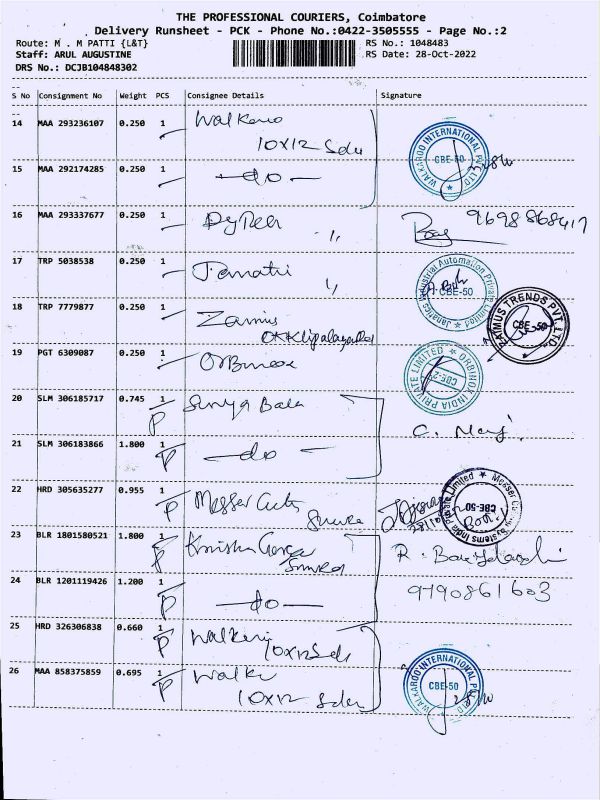 THE PROFESSIONAL COURIERS, Coimbatore
Delivery Runsheet - PCK - Phone No.:0422-3505555 - Page No.:2
Route: M . M PATTI {L&T} RS No.: 1048483
Staff: ARUL AUGUSTINE RS Date: 28-Oct-2022
DRS No.: DCJB104848302
S No Consignment No Weight PCS Consignee Details Signature
14 MAA 293236107 0.250 1 Walkaroo
10x12
WALKAROO INTERNATIONAL PVT LTD CBE-50
15 MAA 292174285 0.250 1 - do -
16 MAA 293337677 0.250 1 9698868417
17 TRP 5038538 0.250 1
Janatics Industrial Automation Private Limited CBE-50
18 TRP 7779877 0.250 1
TRENDS PVT. LTD CBE-50
19 PGT 6309087 0.250 1
ORBINOX INDIA PRIVATE LIMITED
20 SLM 306185717 0.745 1 P Surya Bala
C.
21 SLM 306183866 1.800 1 P - do -
22 HRD 305635277 0.955 1 P Messer
Messer Systems India Private Limited CBE-50
23 BLR 1801580521 1.800 1 P Krishna
R.
24 BLR 1201119426 1.200 1 P - do - 9790861603
25 HRD 326306838 0.660 1 P
10x12
26 MAA 858375859 0.695 1 P
10x12
WALKAROO INTERNATIONAL PVT LTD CBE-50